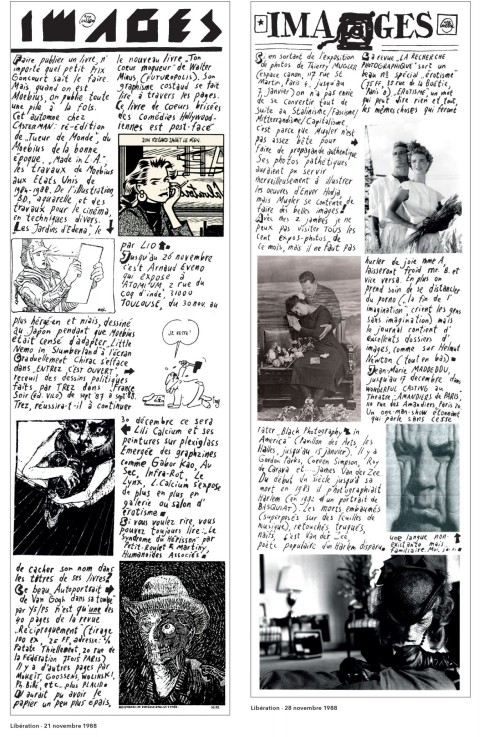 IMAGES
Faire publier un livre, n'
importe quel petit Prix
Goncourt sait le faire.
Mais quand on est
Moebius, on publie toute
une pile à la fois.
Cet automne chez
CASTERMAN: ré-édition
de "Tueur de Monde", du
Moebius de la bonne
époque, "Made in L.A.",
les travaux de Moebius
aux Etats Unis de
1984-1988. De l'illustration,
BD, aquarelle, et des
travaux pour le cinéma,
en techniques divers.
"Les Jardins d'Edena", le
plus hergé-en et niais, dessiné
au Japon pendant que Moebius
était censé d'adapter Little
Nemo in Slumberland à l'écran
Graduellement Chirac s'efface
dans ENTREZ C'EST OUVERT,
receuil des dessins politiques
faits par TREZ dans France
Soir (éd. VICO) de sept 87 à sept 88.
Trez, réussira-t-il à continuer
de cacher son nom dans
les têtres de ses livres?
Ce beau Autoportrait
de Van Gogh dans sa tombe
par Ys/Ps n'est qu'une des
40 pages de la revue
Réciproquement (tirage
100 ex, 25 FF, adresse: %
Patate Thiellement, 20 rue de
la Fédération 75015 PARIS)
Il y a d'autres pages par
MUKEIT, GOOSSENS, WOLINSKI,
Ph. Bibé, etc. plus PLACID.
Q'aurait pu avoir le
papier un peu plus épais,
le nouveau livre "Ton
coeur moqueur" de Walter
Minus (FUTUROPOLIS). Son
graphisme costaud se fait
lire à travers les pages.
Ce livre de coeurs brisées
des comédies Hollywood-
iennes est post-facé
TON REGARD SAVAIT LE MIEN
par LIO
Jusqu'au 26 novembre
c'est Arnaud EVENO
qui expose à
"ATOMIUM", 2 rue du
Coq d'inde, 31000
TOULOUSE, du 30 nov. au
JE RESTE!
30 décembre ce sera
Lili Calcium et ses
peintures sur plexiglass
Emergée des graphzines
comme Gabor Kao, Au
Sec, Infra-Rot, Le
Lynx, L. Calcium s'expose
de plus en plus en
galerie ou salon d'
érotisme
Si vous voulez rire, vous
pouvez toujours lire: "Le
Syndrome du Hérisson" par
Petit-Roulet & Martiny,
Humanoïdes Associés
Libération - 21 novembre 1988
IMAGES
Si on sortant de l'exposition
de photos de Thierry MUGLER
(espace Canon, 117 rue St
Martin, Paris 4, jusqu'au
7 janvier) on n'a pas envie
de se convertir tout de
suite au Stalinisme/Fascisme/
Mitterandisme/Capitalisme,
c'est parce que Mugler n'est
pas assez bête pour
faire de propagande authentique.
Ses photos pathétiques
auraient pu servir
merveilleusement à illustrer
les oeuvres d'Enver Hodja
mais Mugler se contente de
faire des belles images!
Avec mes 2 jambes je ne
peux pas visiter TOUS les
cent expos-photos de
ce mois, mais il ne faut pas
rater "Black Photography in
America" (Pavillon des Arts, les
Halles, jusqu'au 15 janvier). Il y a
Gordon Parks, Coreen Simpson, Roy
de Carava et... James Van der Zee.
Du début du siècle jusqu'à sa
mort en 1983 il photographiait
Harlem (en 1982 un portrait de
BASQUIAT). Les morts embaumés
(superposés sur des feuilles de
musique), retouchés, truqués,
naïfs, c'est Van der Zee,
poète populaire d'un Harlem disparu
La revue "LA RECHERCHE
PHOTOGRAPHIQUE" sort un
beau n° spécial "érotisme"
Paris 8). "EROTISME", un mot
qui peut dire rien et tout,
les mêmes choses qui feront
hurler de joie mme A,
laisseront froid mr. B. et
vice versa. En plus on
prend soin de se distancier
du porno ("la fin de l'
imagination", crient les gens
sans imagination) mais
le journal contient d'
excellents dossiers d'
images, comme sur Helmut
Newton (tout en bas)
Jean-Marie MADDEDDU,
jusqu'au 17 décembre dans
WONDERFUL CASTING au
Théatre "AMANDIERS de PARIS",
110 rue des Amandiers, Paris 20.
Un one-man-show étonnant
qui parle sans cesse
une langue non-
existante mais
familière.
Libération - 28 novembre 1988